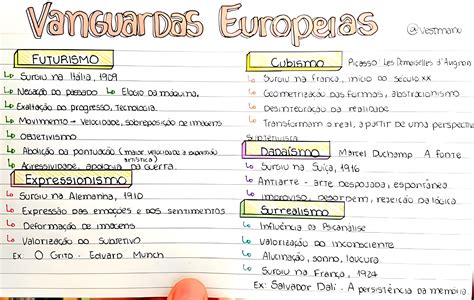 Vanguardas Europeias
@vestmanu
FUTURISMO
Surgiu na Itália, 1909
Negação do passado Elogio da máquina,
Exaltação do progresso, tecnologia.
Movimento → velocidade, sobreposição de imagens
Objetivismo
Abolição da pontuação (maior velocidade e expansão
artística)
Agressividade, apologia da guerra.
Expressionismo
Surgiu na Alemanha, 1910
Expressão das emoções e dos sentimentos
Deformação de imagens
Valorização do subjetivo
Ex: O Grito - Edvard Munch
Cubismo Picasso: Les Demoiselles d'Avignon
Surgiu na França, início do século XX
Geometrização das formas, abstracionismo
Desintegração da realidade
Transformam o real, a partir de uma perspectiva
subjetivista
Dadaísmo Marcel Duchamp A Fonte
Surgiu na Suíça, 1916
Antiarte - arte despojada, espontânea
Improviso, desordem, rejeição da lógica.
Surrealismo
Influência da Psicanálise
Valorização do inconsciente
Alucinação, sonho, loucura.
Surgiu na França, 1924
Ex: Salvador Dalí - A persistência da memória